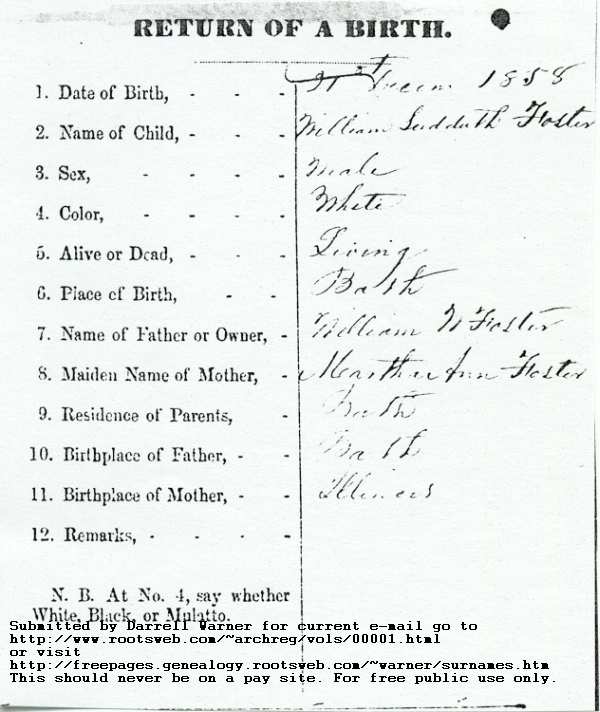 RETURN OF A BIRTH.
1. Date of Birth, - - - 1858
2. Name of Child, - - - William Sudduth Foster
3. Sex, - - - - Male
4. Color, - - - - White
5. Alive or Dead, - - - Living
6. Place of Birth, - - Bath
7. Name of Father or Owner, - William W Foster
8. Maiden Name of Mother, - Martha Ann Foster
9. Residence of Parents, - Bath
10. Birthplace of Father, - - Bath
11. Birthplace of Mother, - - Illinois
12. Remarks, - - - -
N. B. At No. 4, say whether
White, Black, or Mulatto.
Submitted by Darrell Warner for current e-mail go to
http://www.rootsweb.com/~archreg/vols/00001.html
or visit
http://freepages.genealogy.rootsweb.com/~warner/surnames.htm
This should never be on a pay site. For free public use only.